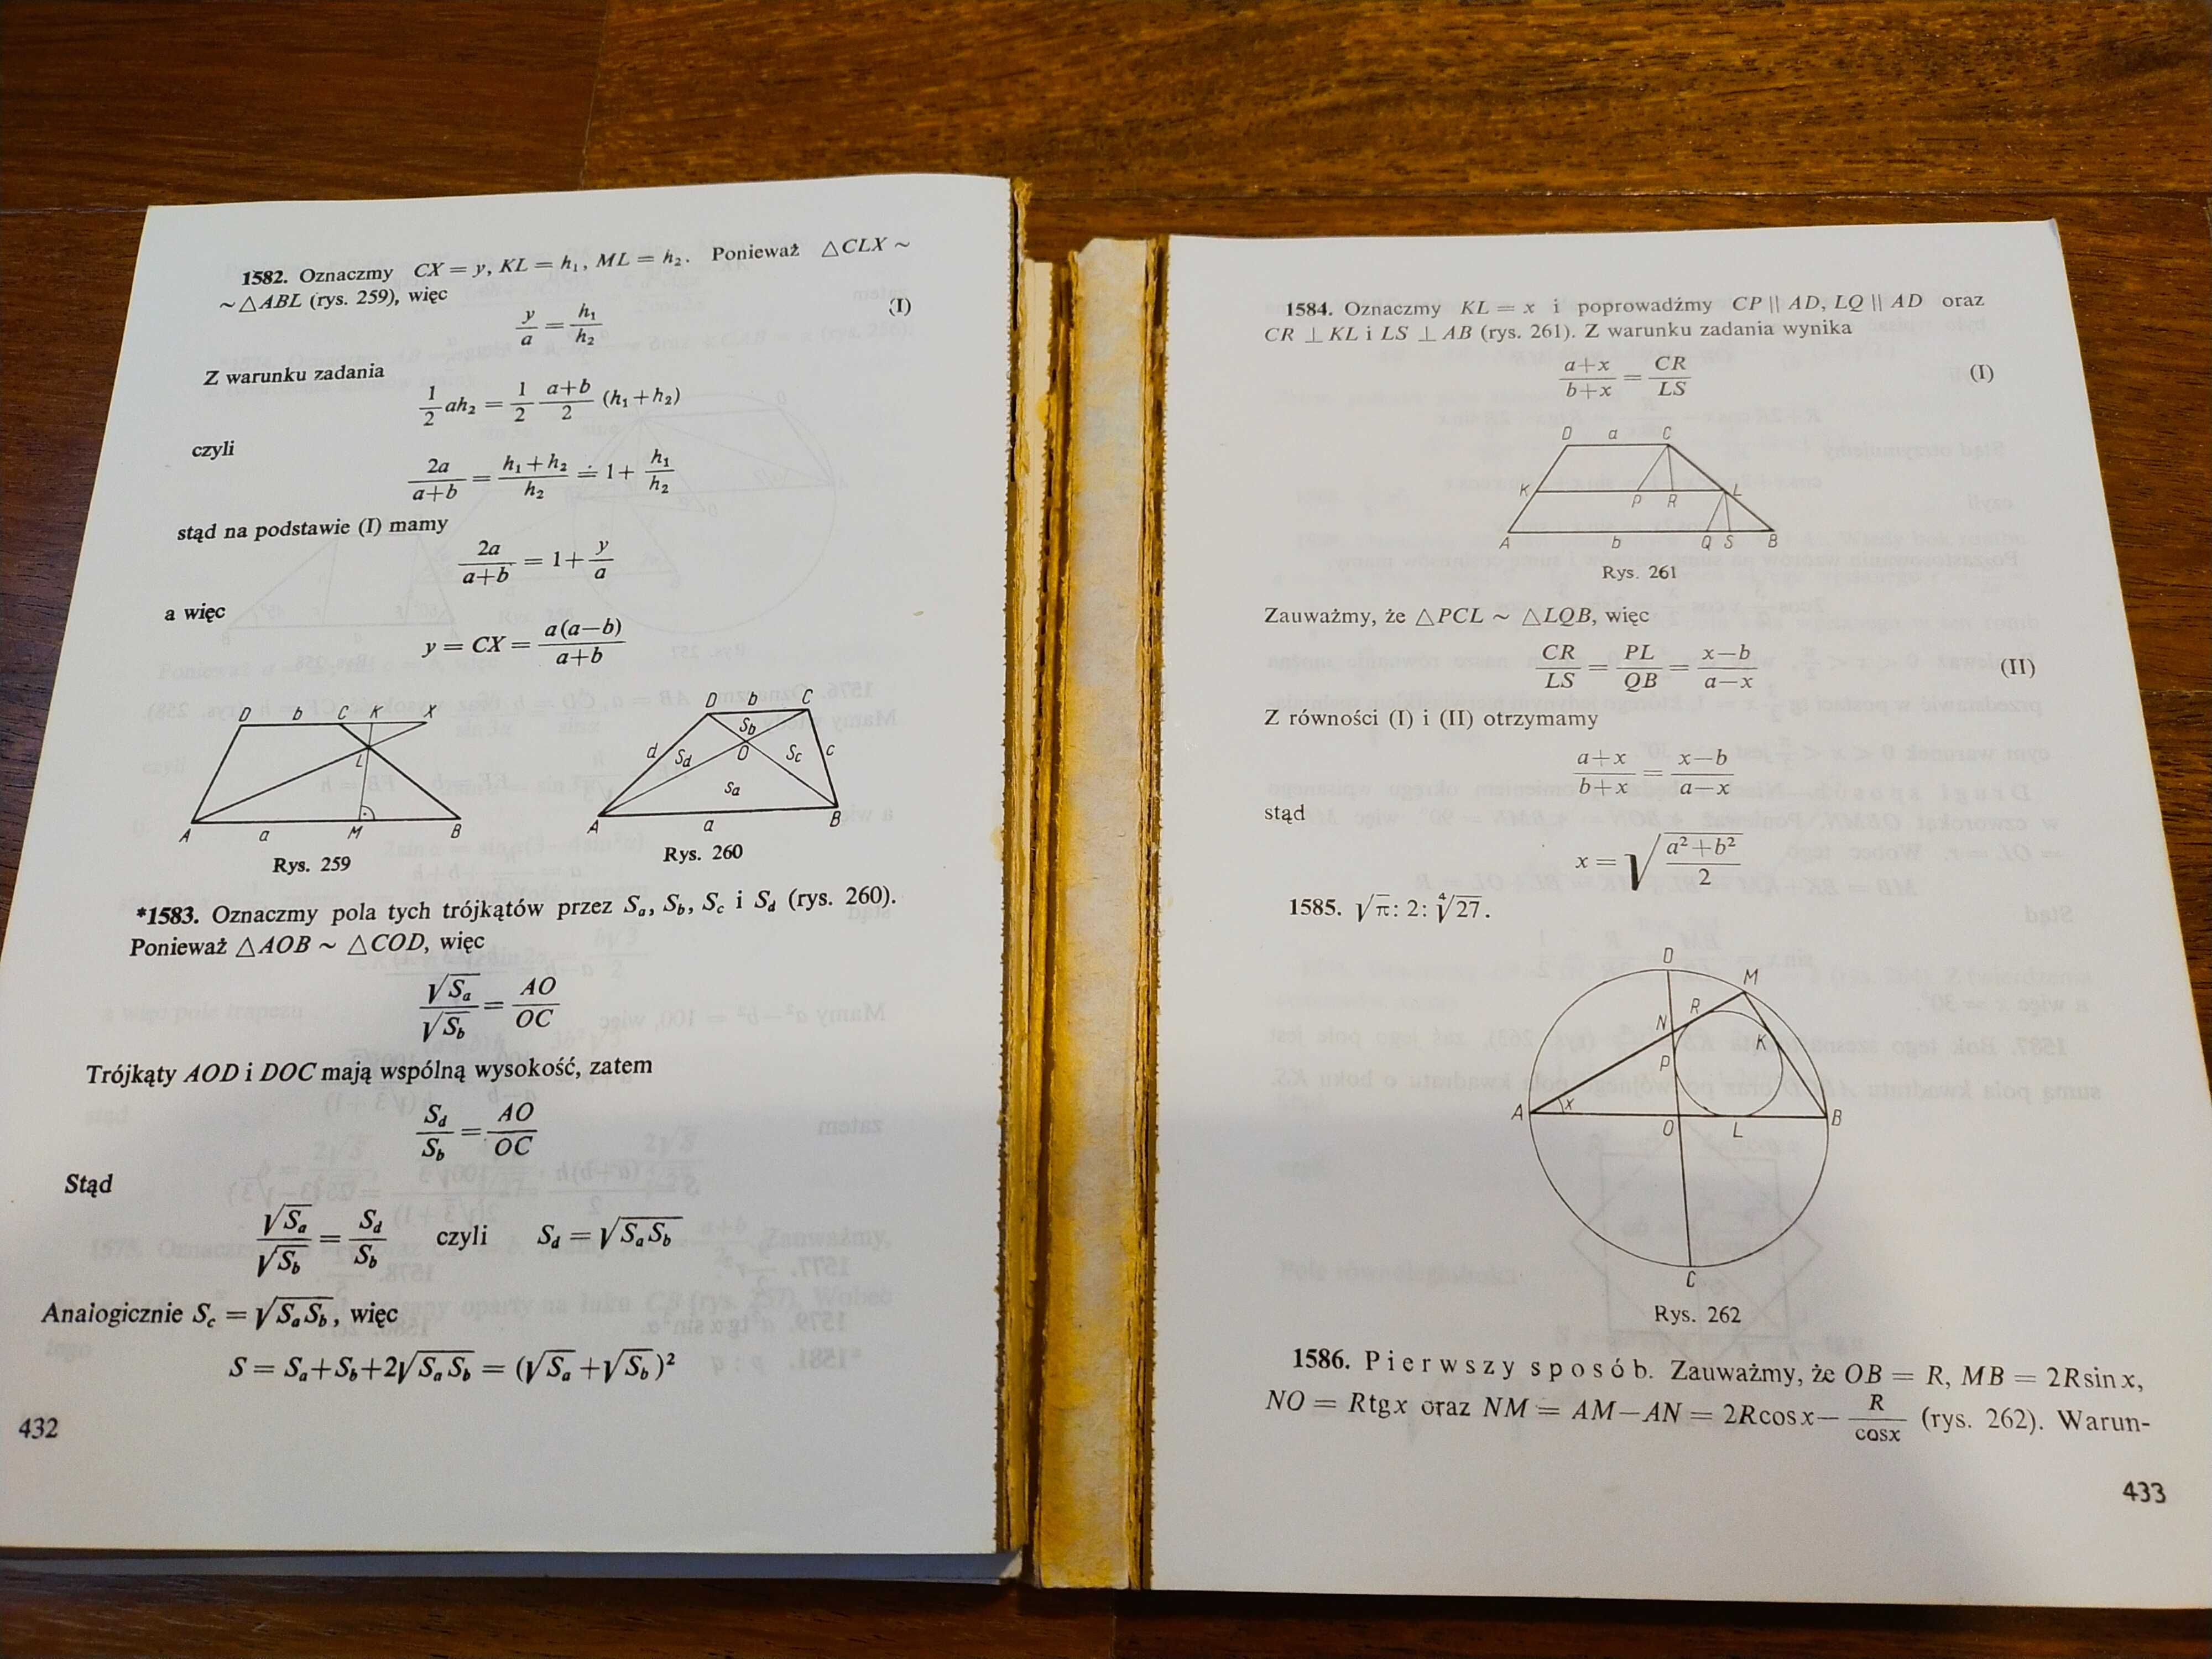 1582. Oznaczmy CX = y, KL = h₁, ML = h₂. Ponieważ △CLX ~
~ △ABL (rys. 259), więc
y/a = h₁/h₂ (I)
Z warunku zadania
1/2 ah₂ = 1/2 (a+b)/2 (h₁+h₂)
czyli
2a/(a+b) = (h₁+h₂)/h₂ = 1+ h₁/h₂
stąd na podstawie (I) mamy
2a/(a+b) = 1+ y/a
a więc
y = CX = a(a−b)/(a+b)
D b C K X
L
A a M B
Rys. 259
D b C
d S_d S_b O S_c c
S_a
A a B
Rys. 260
*1583. Oznaczmy pola tych trójkątów przez S_a, S_b, S_c i S_d (rys. 260).
Ponieważ △AOB ~ △COD, więc
√S_a/√S_b = AO/OC
Trójkąty AOD i DOC mają wspólną wysokość, zatem
S_d/S_b = AO/OC
Stąd
√S_a/√S_b = S_d/S_b czyli S_d = √(S_aS_b)
Analogicznie S_c = √(S_aS_b), więc
S = S_a+S_b+2√(S_aS_b) = (√S_a+√S_b)²
432
1584. Oznaczmy KL = x i poprowadźmy CP || AD, LQ || AD oraz
CR ⊥ KL i LS ⊥ AB (rys. 261). Z warunku zadania wynika
(a+x)/(b+x) = CR/LS (I)
D a C
K P R L
A b Q S B
Rys. 261
Zauważmy, że △PCL ~ △LQB, więc
CR/LS = PL/QB = (x−b)/(a−x) (II)
Z równości (I) i (II) otrzymamy
(a+x)/(b+x) = (x−b)/(a−x)
stąd
x = √((a²+b²)/2)
1585. √π : 2 : ⁴√27.
D M
R
N K
P
A x O L B
C
Rys. 262
1586. Pierwszy sposób. Zauważmy, że OB = R, MB = 2Rsinx,
NO = Rtgx oraz NM = AM−AN = 2Rcosx− R/cosx (rys. 262). Warun-
433